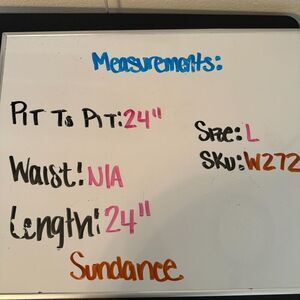 Measurements:
Pit To Pit: 24"
Size: L
SKU: W272
Waist: N/A
Length: 24"
Sundance